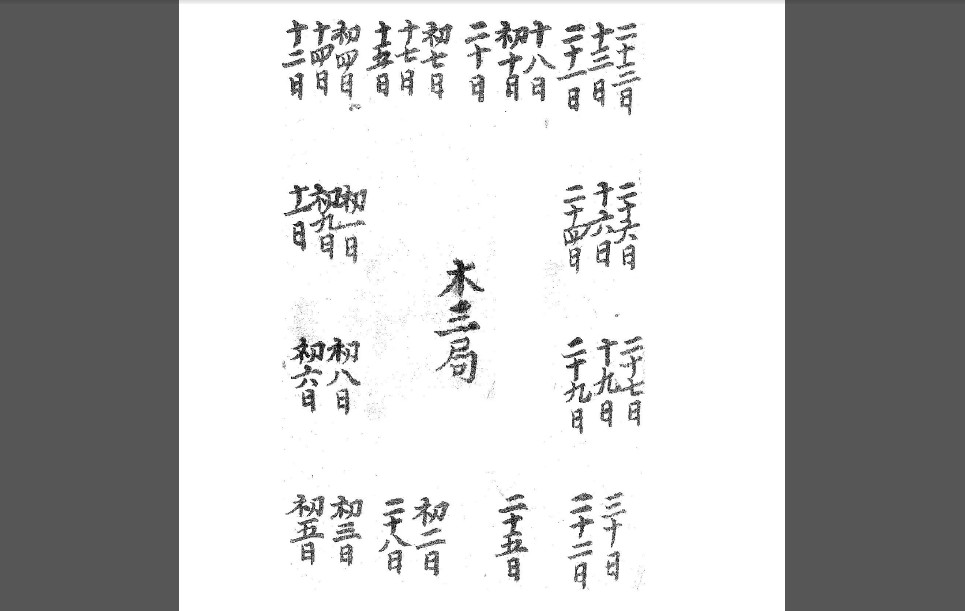 二十三日
十三日
二十一日
十八日
初十日
二十日
初七日
十七日
十五日
初四日
十四日
十二日
二十六日
十六日
二十四日
初一日
初九日
十一日
木三局
二十七日
十九日
二十九日
初八日
初六日
三十日
二十二日
二十五日
初二日
二十八日
初三日
初五日